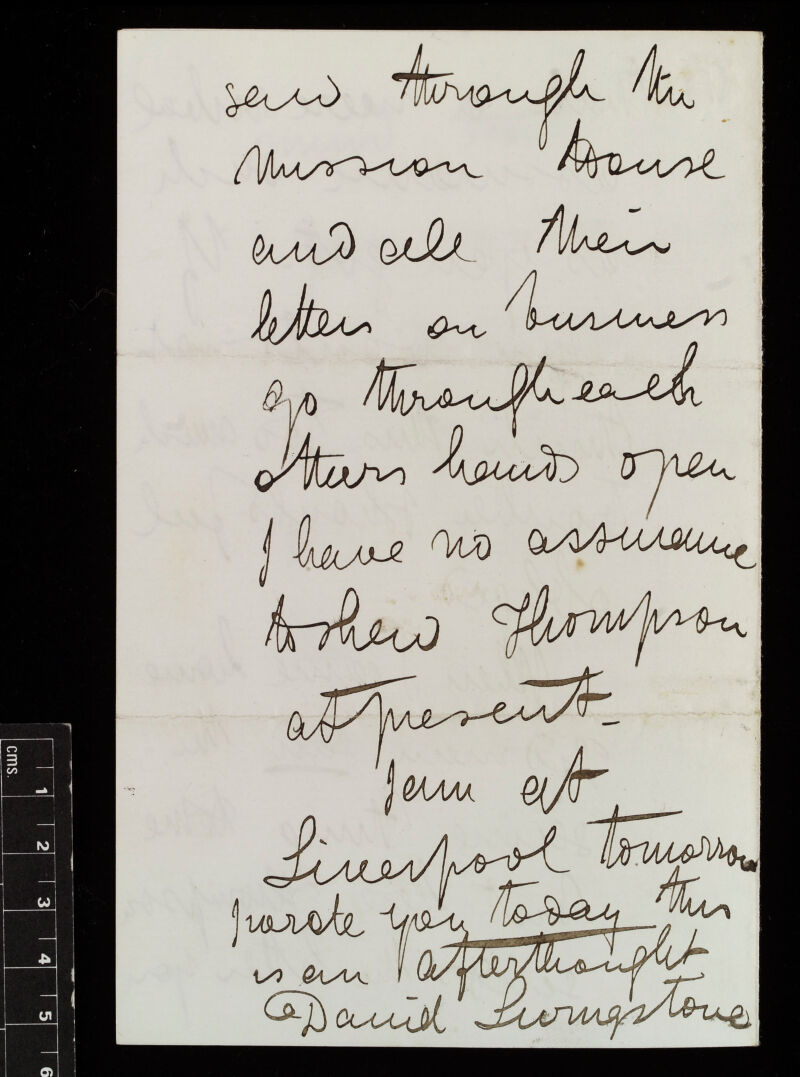 send through the
Mission House
and all their
letters on business
go through each
others hands open
I have no assurance
to shew Thompson
at present_
I am at
Liverpool tomorrow
I wrote you today this
is an afterthought
David Livingstone
cms.
1
2
3
4
5
6